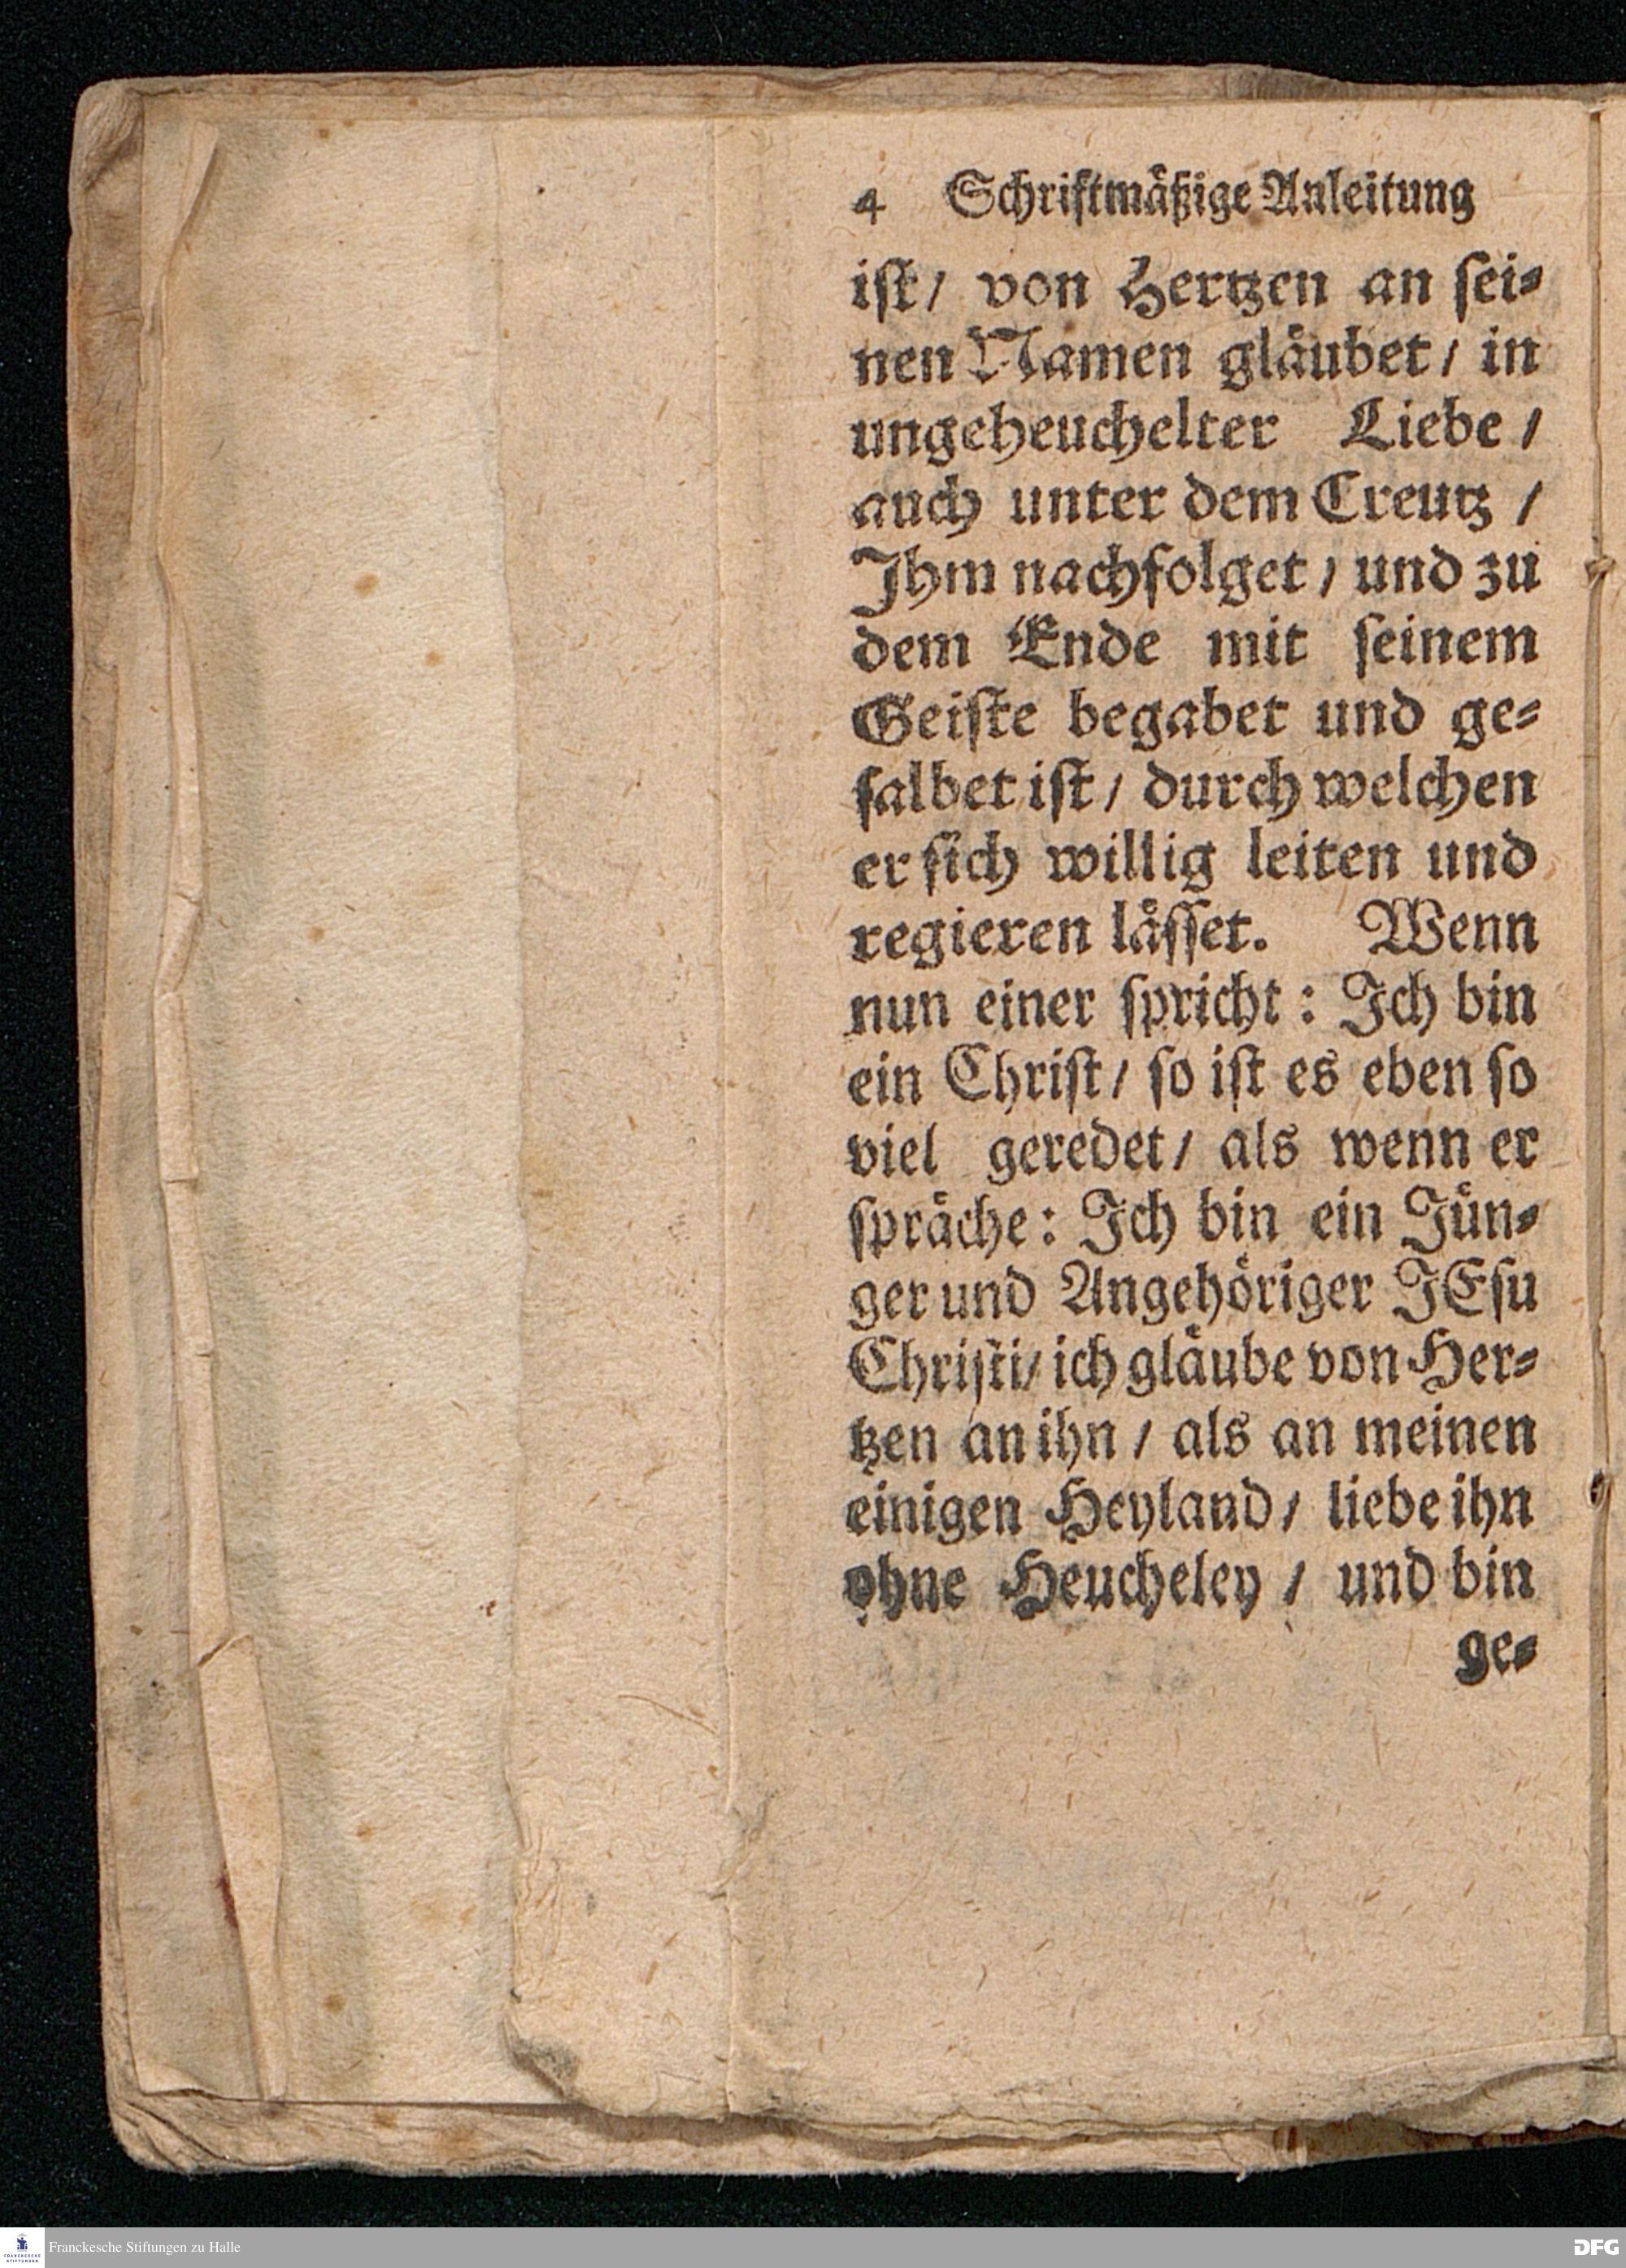 4 Schriftmäßige Anleitung
iſt/ von Hertzen an ſei-
nen Namen gläubet/ in
ungeheuchelter Liebe/
auch unter dem Creutz/
Ihm nachfolget/ und zu
dem Ende mit ſeinem
Geiſte begabet und ge-
ſalbet iſt/ durch welchen
er ſich willig leiten und
regieren läſſet. Wenn
nun einer ſpricht: Ich bin
ein Chriſt/ ſo iſt es eben ſo
viel geredet/ als wenn er
ſpräche: Ich bin ein Jün-
ger und Angehöriger JEſu
Chriſti/ ich gläube von Her-
tzen an ihn/ als an meinen
einigen Heyland/ liebe ihn
ohne Heucheley/ und bin
ge-
FRANCKESCHE
STIFTUNGEN
Franckesche Stiftungen zu Halle
DFG